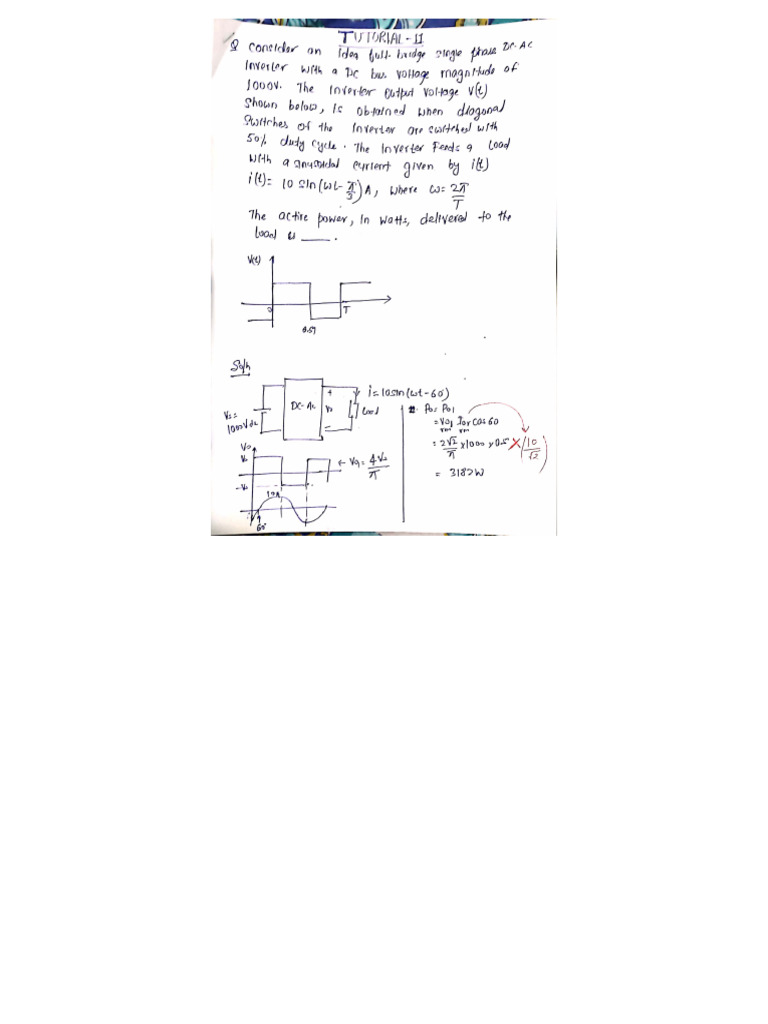 TUTORIAL-11
Q Consider an idea full-bridge single phase DC-AC
Inverter with a DC bus voltage magnitude of
1000V. The Inverter output voltage V(t)
Shown below, is obtained when diagonal
Switches of the Inverter are switched with
50% duty cycle. The Inverter Feeds a load
with a sinusoidal current given by i(t)
i(t)= 10 sin(ωt-π/3)A, where ω=2π/T
The active power, in watts, delivered to the
load is ____.
V(t)
0 T
0.5T
Soln
Vs= 1000Vdc
DC-AC
+ Vo -
load
i=10sin(ωt-60)
Vo
Vs
-Vs
← Vo1 = 4Vs/π
10A
60°
= Vo1 Io1 cos60
rm rm
= 2√2/π ×1000 ×0.5 × (10/√2)
= 3182W